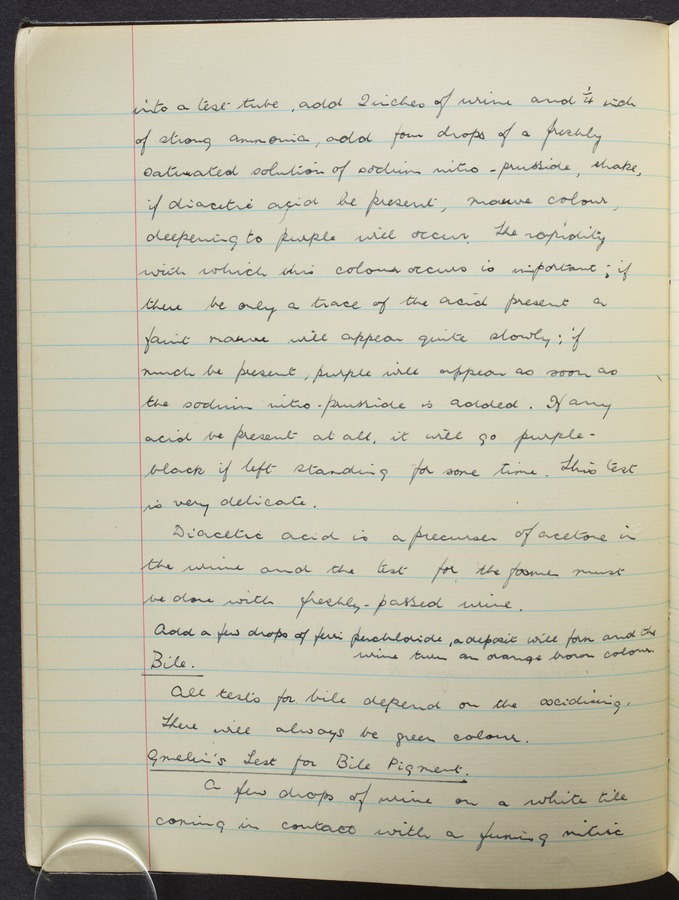 into a test tube, add 2 inches of urine and ¼ inch
of strong ammonia, add four drops of a freshly
saturated solution of sodium nitro-prusside, shake,
if diacetic acid be present, mauve colour,
deepening to purple will occur. The rapidity
with which this colour occurs is important; if
there be only a trace of the acid present a
faint mauve will appear quite slowly; if
much be present, purple will appear as soon as
the sodium nitro-prusside is added. If any
acid be present at all, it will go purple-
black if left standing for some time. This test
is very delicate.
Diacetic acid is a precurser of acetone in
the urine and the test for the former must
be done with freshly-passed urine.
Add a few drops of ferri perchloride, a deposit will form and the
urine turn an orange brown colour.
Bile.
All tests for bile depend on the oxidising.
There will always be green colour.
Gmelin's Test for Bile Pigment.
A few drops of urine on a white tile
coming in contact with a fuming nitric